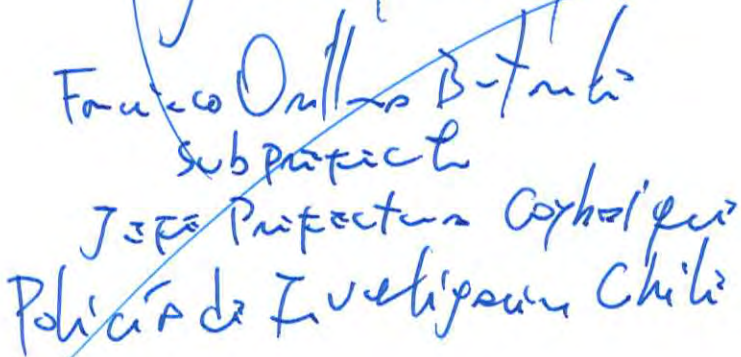 Francisco Orellana
Subprefecto
Jefe Prefectura Coyhaique
Policía de Investigación Chile